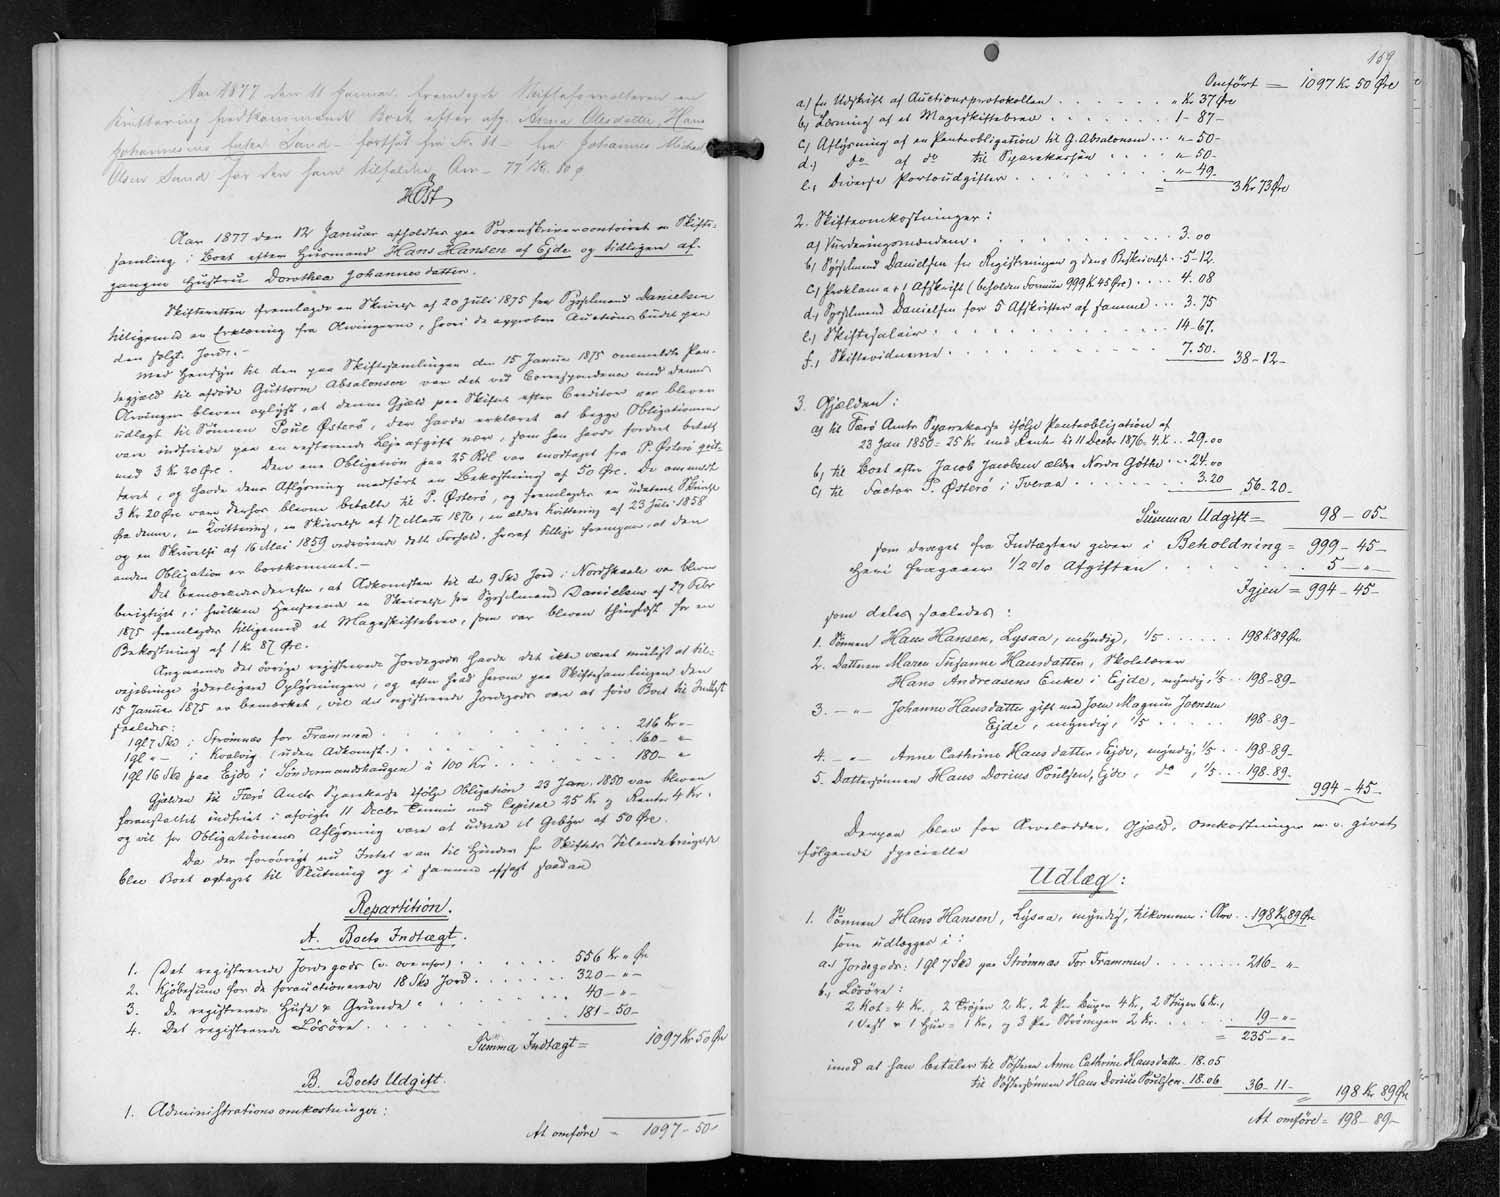 Aar 1877 den 11 Januar fremlagde Skifteforvalteren en
Kvittering vedkommende Boet efter afg. Anna Olesdatter, Hans
Johannesens Enke Sand – fortsat fra Fo. 81 – fra Johannes Michael
Olsen Sand for den ham tilfaldne Arv – 77 Kr. 80 Ø
HOst
Aar 1877 den 12 Januar afholdtes paa Sorenskrivercontoiret en Skifte-
samling i Boet efter Husmand Hans Hansen af Ejde og tidligere af-
gangne Hustru Dorothea Johannesdatter.
Skifteretten fremlagde en Skrivelse af 20 Juli 1875 fra Sysselmand Danielsen
tilligemed en Erklæring fra Arvingerne, hvori de approbere Auctionsbudet paa
den solgte Jord. –
Med Hensyn til den paa Skiftesamlingen den 15 Januar 1875 ommeldte Pan-
tegjæld til afdøde Guttorm Absalonsen var det ved Correspondence med dennes
Arvinger bleven oplyst, at denne Gjæld paa Skiftet efter Creditor var bleven
udlagt til Sønnen Poul Østerø, der havde erklæret at begge Obligationerne
vare indfriede paa en resterende Leje afgift nær, som han havde fordret betalt
med 3 Kr 20 Øre. Den ene Obligation paa 25 Rdl var modtaget fra P. Østerø qvit-
teret, og havde dens Aflysning medført en Bekostning af 50 Øre. De ommeldte
3 Kr 20 Øre vare derfor blevne betalte til P. Østerø, og fremlagdes en udateret Skrivelse
fra denne, en Kvittering, en Skrivelse af 17 Marts 1876, en ældre Kvittering af 23 Juli 1858
og en Skrivelse af 16 Mai 1859 vedrørende dette Forhold, hvoraf tillige fremgaar, at den
anden Obligation er bortkommet. –
Det bemærkedes derefter, at Adkomsten til de 9 Skd Jord i Nordskaale var bleven
berigtiget, i hvilken Henseende en Skrivelse fra Sysselmand Danielsen af 27 Febr
1875 fremlagdes tilligemed et Mageskiftebrev, som var bleven thinglæst for en
Bekostning af 1 Kr 87 Øre.
Angaaende det øvrige registrerede Jordegods havde det ikke været muligt at til-
vejebringe yderligere Oplysninger, og efter hvad herom paa Skiftesamlingen den
15 Januar 1875 er bemærket, vil det registrerede Jordegods være at føre Boet til Indtægt
saaledes:
1 gl 7 Skd i Strømnæs for Frammen . . . 216 Kr „ –
1 gl „ – i Kvalvig (uden Adkomst.) . . . 160 – „
1 gl 16 Skd paa Ejde i Søndermandshaugen à 100 Kr . . . 180 – „
Gjælden til Færø Amts Sparekasse ifølge Obligation 23 Jan. 1850 var bleven
foranstaltet indfriet i afvigte 11 Decbr Termin med Capital 25 Kr og Renter 4 Kr.
og vil for Obligationens Aflysning være at udrede et Gebyr af 50 Øre.
Da der forøvrigt nu Intet var til Hinder for Skiftets Tilendebringelse
blev Boet optaget til Slutning og i samme afsagt saadan
Repartition.
A. Boets Indtægt.
1. Det registrerede Jordegods (v. ovenfor) . . . 556 Kr „ Øre
2. Kjøbesum for de forauctionerede 18 Skd Jord . . . 320 – „ –
3. De registrerede Huse & Grunde . . . 40 – „ –
4. Det registrerede Løsøre . . . 181 – 50 –
Summa Indtægt = 1097 Kr 50 Øre
B. Boets Udgift.
1. Administrationsomkostninger:
At omføre = 1097 – 50 –
169
Omført = 1097 Kr 50 Øre
a) En Udskrift af Auctionsprotokollen . . . „ Kr 37 Øre
b) Læsning af et Mageskiftebrev . . . 1 – 87 –
c) Aflysning af en Panteobligation til G. Absalonsen . . . „ – 50 –
d) do af do til Sparekassen . . . „ – 50 –
e) Diverse Portoudgifter . . . „ – 49 –
= 3 Kr 73 Øre
2. Skifteomkostninger:
a) Vurderingsmændene . . . 3.00
b) Sysselmand Danielsen for Registreringen og dens Beskrivelse . . 5-12.
c) Proklama + 1 Afskrift (beholden Formue 999 K 45 Øre) . . . 4.08
d) Sysselmand Danielsen for 5 Afskrifter af samme . . . 3.75
e) Skiftesalair . . . 14-67.
f) Skiftevidnerne . . . 7.50. 38 – 12 –
3. Gjælden:
a) til Færø Amts Sparekasse ifølge Panteobligation af
23 Jan 1850 = 25 Kr med Renter til 11 Decbr 1876 4. K . . 29.00
b) til Boet efter Jacob Jacobsen ældre Nordre Gøthe . . . 24.00
c) til Factor P. Østerø i Tveraa . . . 3.20 56-20-
Summa Udgift = 98 – 05 –
som draget fra Indtægten giver i Beholdning = 999 – 45 –
Heri fragaaer 1/2 % Afgiften . . . 5 – „ –
Igjen = 994 – 45 –
som deles saaledes:
1. Sønnen Hans Hansen, Lysaa, myndig, 1/5 . . . 198 K 89 Øre
2. Datteren Maren Susanne Hansdatter, Skolelærer
Hans Andreasens Enke i Ejde, myndig, 1/5 . . 198-89-
3. – „ – Johanne Hansdatter gift med Joen Magnus Joensen
Ejde, myndig, 1/5 . . . 198-89-
4. – „ – Anne Cathrine Hansdatter, Ejde, myndig, 1/5 . . 198-89-
5. Dattersønnen Hans Dorius Poulsen, Ejde, do, 1/5 . . . 198-89.
994 – 45 –
Derpaa blev for Arvelodder, Gjæld, Omkostninger m. v. givet
følgende specielle
Udlæg:
1. Sønnen Hans Hansen, Lysaa, myndig, tilkommer i Arv . . 198 Kr 89 Øre
som udlægges i:
a) Jordegods: 1 gl 7 Skd paa Strømnæs For Frammen . . . 216 – „
b) Løsøre:
2 Kot = 4 Kr., 2 Trøjer 2 Kr., 2 Par Buxer 4 Kr., 2 Stuger 6 Kr.,
1 Vest & 1 Hue = 1 Kr., og 3 Par Strømper 2 Kr. . . . 19 – „ –
= 235 – „ –
imod at han betaler til Søsteren Anne Cathrine Hansdatter 18.05
til Søstersønnen Hans Dorius Poulsen 18.06 36 – 11 – = 198 Kr 89 Øre
At omføre = 198 – 89 –